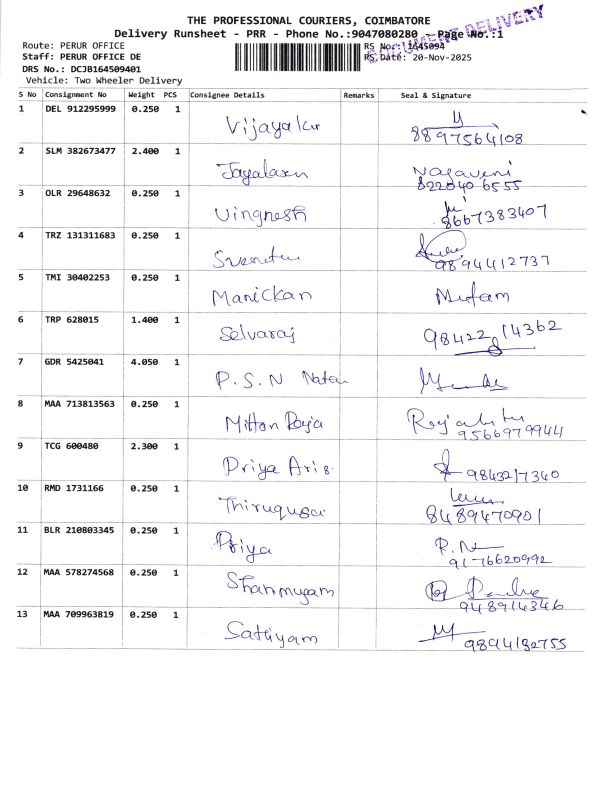 THE PROFESSIONAL COURIERS, COIMBATORE
Delivery Runsheet - PRR - Phone No.:9047080280 - Page No.:1
DOCUMENT DELIVERY
Route: PERUR OFFICE RS No.: 1645094
Staff: PERUR OFFICE DE RS Date: 20-Nov-2025
DRS No.: DCJB164509401
Vehicle: Two Wheeler Delivery
S No Consignment No Weight PCS Consignee Details Remarks Seal & Signature
1 DEL 912295999 0.250 1 Vijayakur
8897564108
2 SLM 382673477 2.400 1 Nagaveni
822040 6555
3 OLR 29648632 0.250 1 Vingnesh
8667383407
4 TRZ 131311683 0.250 1
9894412737
5 TMI 30402253 0.250 1 Manickan
6 TRP 628015 1.400 1 Selvaraj 98422 14362
7 GDR 5425041 4.050 1 P.S.N Natar
8 MAA 713813563 0.250 1 Mitton Raja
9566979944
9 TCG 600480 2.300 1 Priya Aris 9843217340
10 RMD 1731166 0.250 1
8489470901
11 BLR 210803345 0.250 1 Priya
9176620992
12 MAA 578274568 0.250 1 Shanmugam
948914346
13 MAA 709963819 0.250 1 Sathyam
9894132755